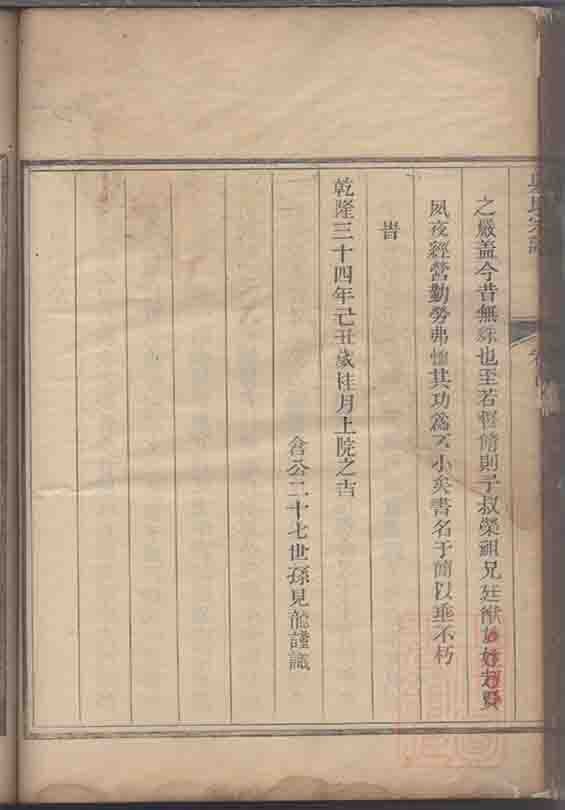 之嚴葢今昔無殊也至若督脩則予叔榮祖兄廷猷
夙夜經營勤勞弗憚其功爲不小矣書名于簡以垂不朽
旹
乾隆三十四年己丑歲桂月上院之吉
含公二十七世孫見龍謹識